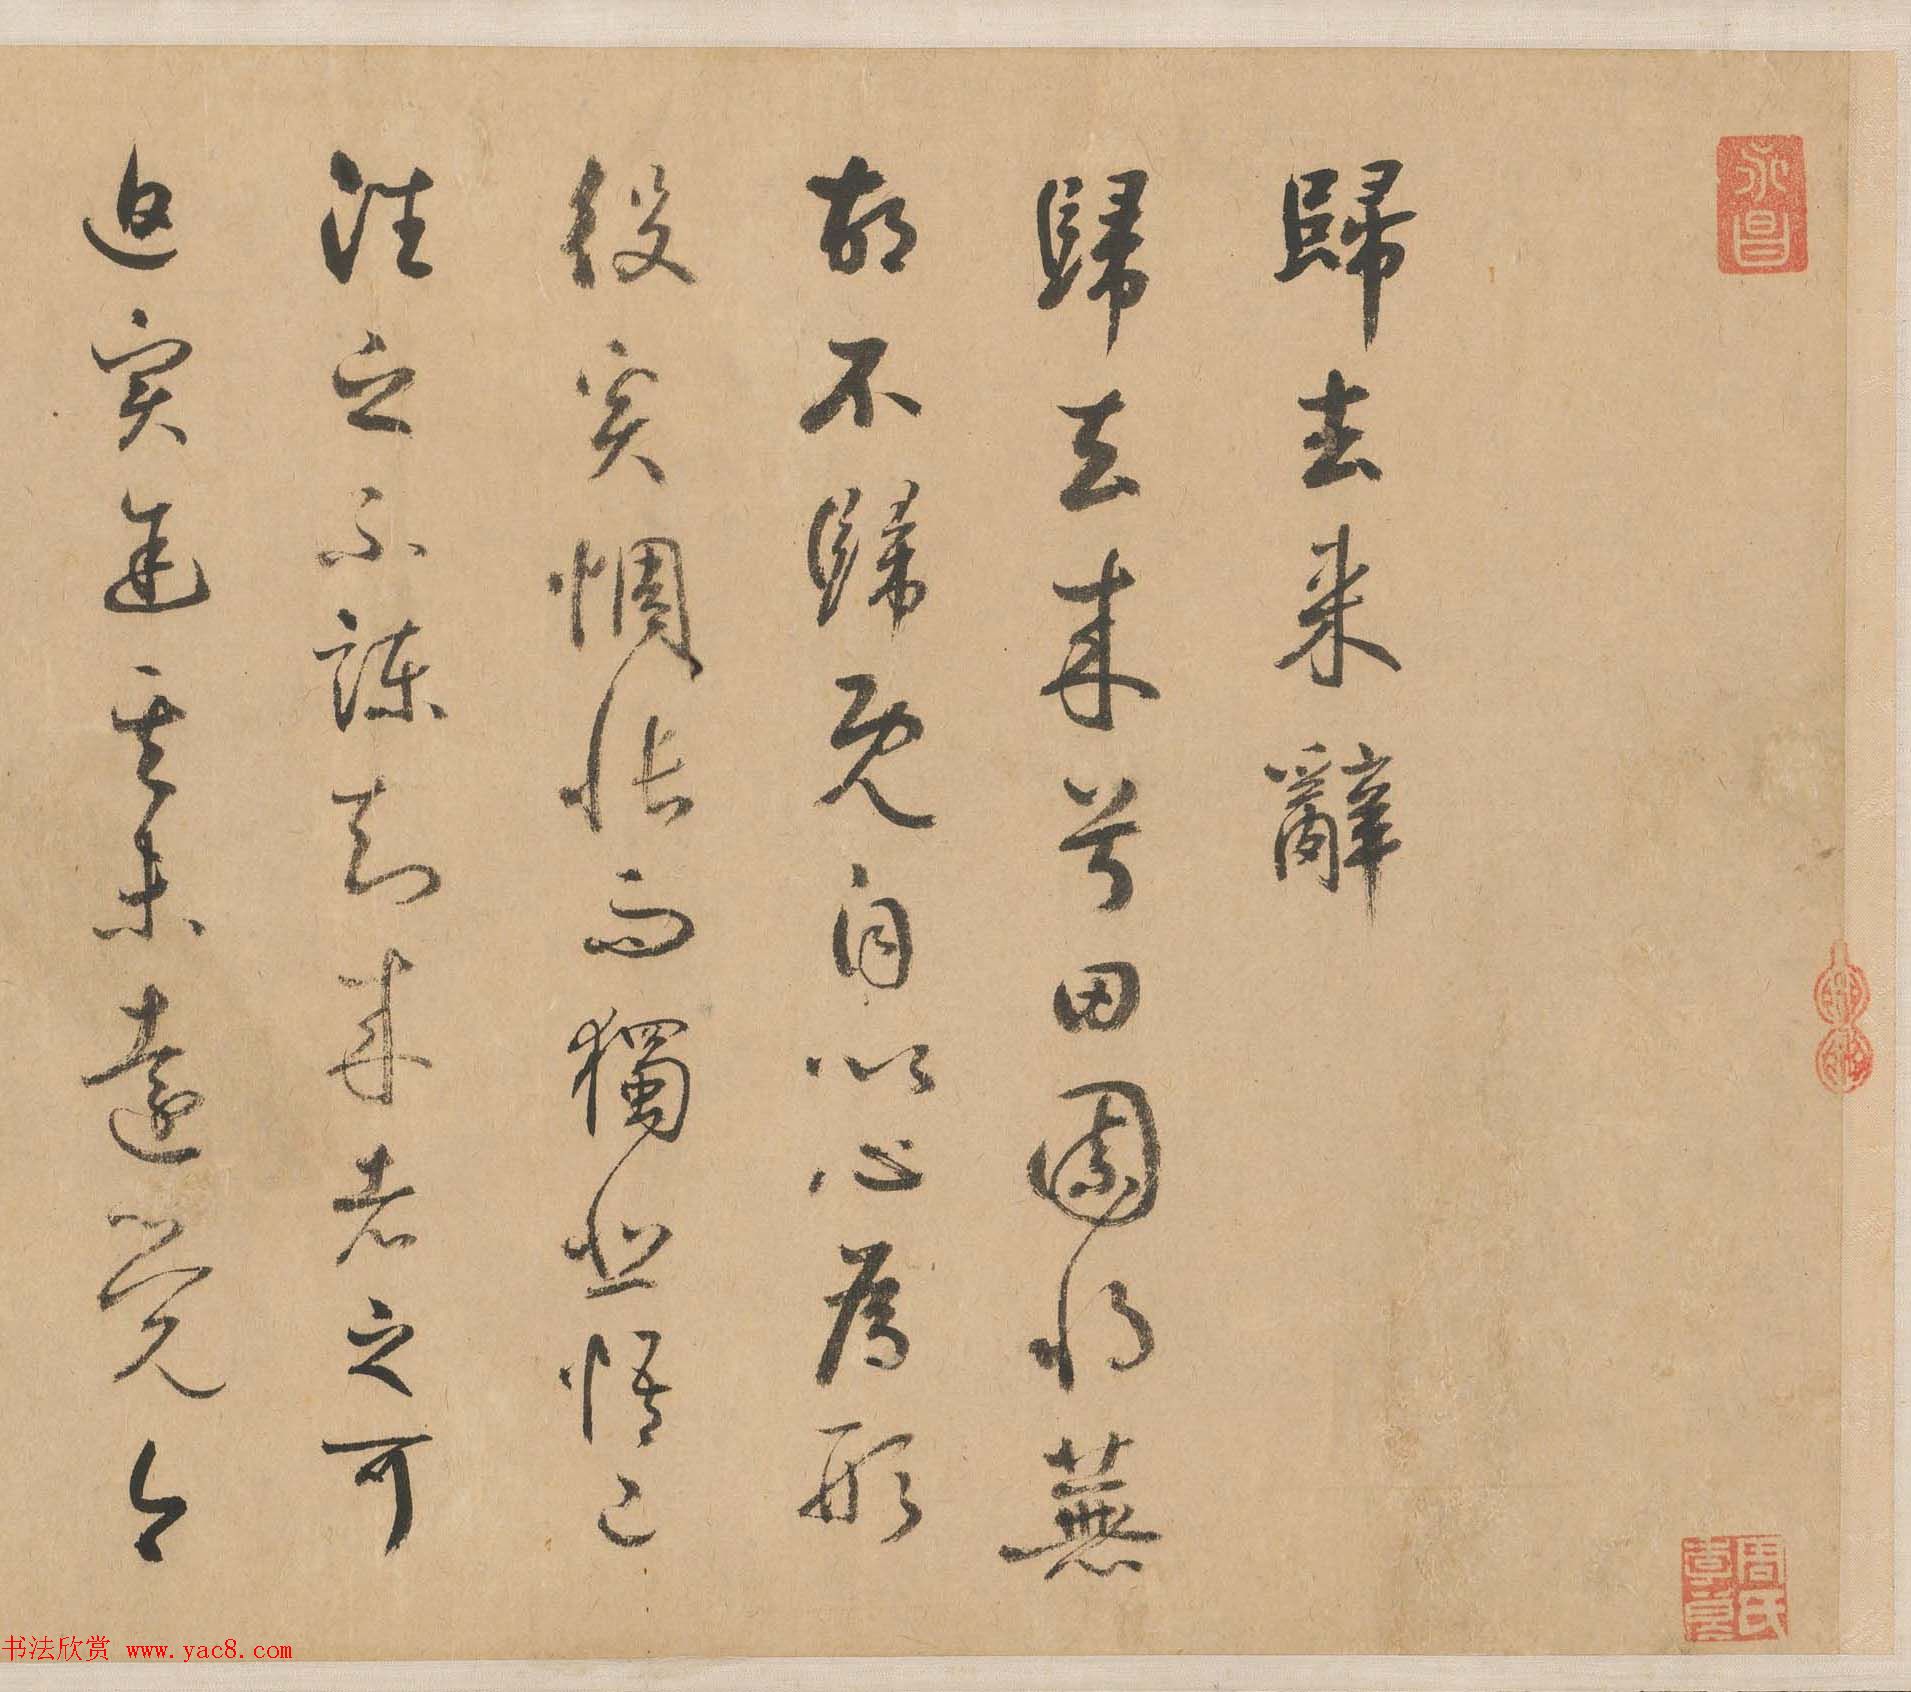 歸去来辭
歸去來兮田園將蕪
胡不歸既自以心為形
役奚惆悵而獨悲悟已
往之不諫知來者之可
追實迷其未遠覺今
永昌
周氏
书法欣赏 www.yac8.com